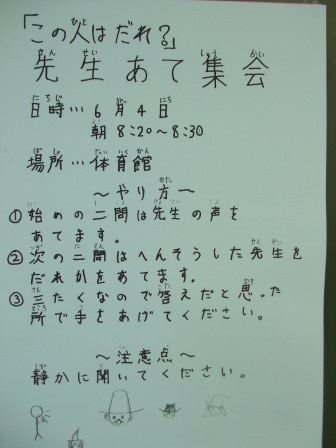 「この人はだれ？」
先生あて集会
日時… 6月4日
朝 8:20～8:30
場所… 体育館
～やり方～
①始めの二問は先生の声を
あてます。
②次の二問はへんそうした先生を
だれかをあてます。
③三たくなので答えだと思った
所で手をあげてください。
～注意点～
静かに聞いてください。